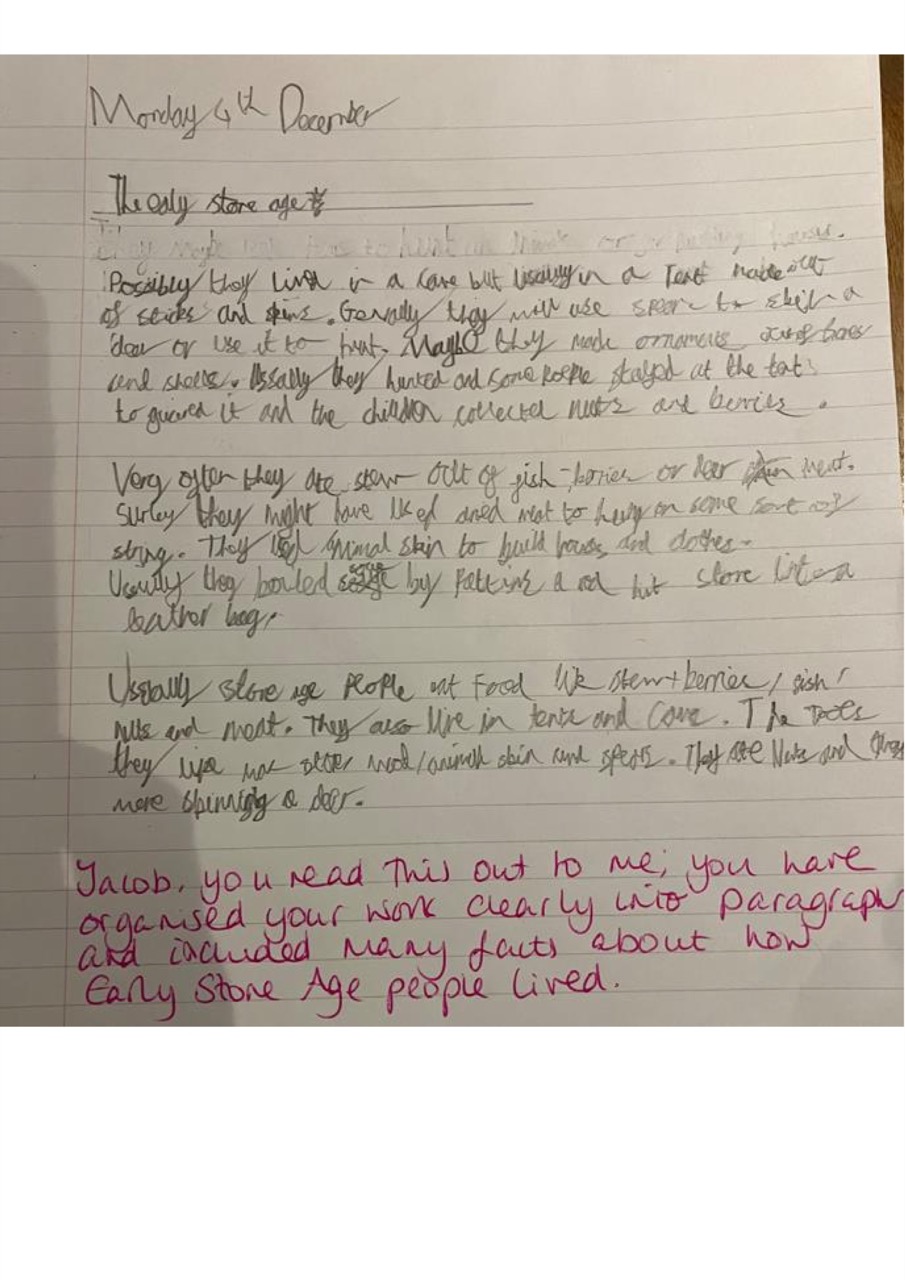 Monday 4th December
The ealy stone age
They maybe to hunt or
Possibly they live in a cave but usually in a Tent made out
of sticks and skins. Genrally they will use spear to skin a
deer or use it to hunt. Maybe they made ornaments out of bones
and shells. Ussally they hunted and some people stayed at the tent
to guared it and the children collected nuts and berries.
Very often they ate stew out of fish, berries or deer meat.
Surley they might have liked dried meat to hung on some sort of
string. They used animal skin to build houses and clothes.
Usually they boiled by putting a red hot stone into a
leather bag.
Usually stone age people eat food like stew + berries / fish /
nuts and meat. They also live in tents and Cave. The Tools
they wood / animal skin and spears. They ate Nuts and
more skinning a deer.
Jacob, you read this out to me; you have
organised your work clearly into paragraphs
and included many facts about how
Early Stone Age people lived.